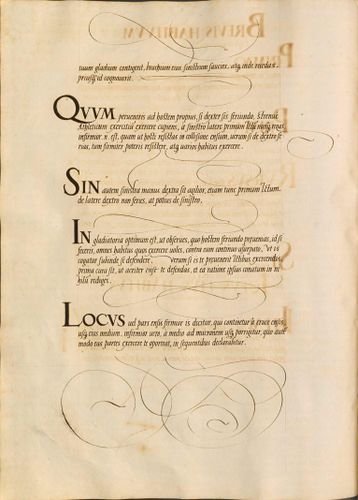 tuum gladium contigerit, brachium eius sinistrum saucies, atq; inde recedas
priusq; id cognouerit.
QVVM perueneris ad hostem propius, si dexter sis feriundo, strenue
Athleticum exercitui exercere cupiens, à sinistro latere primum
infirmior n. est, quam ut hosti resistere in collisione ensium, uerum si de dextro fe
rias, tum firmiter poteris resistere, atq; uarios habitus exercere.
SIN autem sinistra manus dextra sit agilior, etiam tunc primum ictum.
de latere dextro non feries, at potius de sinistro.
IN gladiatoria optimum est, ut obserues, quo hostem feriundo preuenias, id si
feceris, omnes habitus quos exercere uoles, contra eum continuo usurpato, ut is
cogatur subinde se defendere. Verum si is te preuenerit ictibus excipiendis,
prima cura sit, ut acriter ense te defendas, et ea ratione ipsius conatum in ni
hilū rediges.
LOCVS uel pars ensis firmior is dicitur, qui continetur à cruce ensis,
usq; eius medium. infirmior uero, à medio ad mucronem usq; porrigitur, quo aute
modo eas partes exercere te oporteat, in sequentibus declarabitur.